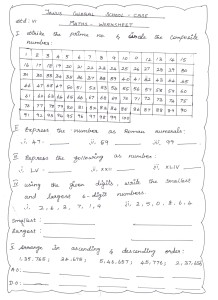 Jesus Central School - CBSE
Std: VI Maths - Worksheet
I Strike the prime no & circle the composite
number:
1 2 3 4 5 6 7 8 9 10 11 12 13 14 15
16 17 18 19 20 21 22 23 24 25 26 27 28 29 30
31 32 33 34 35 36 37 38 39 40 41 42 43 44 45
46 47 48 49 50 51 52 53 54 55 56 57 58 59 60
61 62 63 64 65 66 67 68 69 70 71 72 73 74 75
76 77 78 79 80 81 82 83 84 85 86 87 88 89 90
91 92 93 94 95 96 97 98 99 100
II Express the number as Roman numerals:
i. 47: ii. 69 iii. 99
III Express the following as number:
i. LV: ii. XXV iii. XLIV
IV Using the given digits, write the smallest
and largest 6-digit numbers
i. 2, 6, 3, 7, 1, 9 ii. 2, 5, 0, 8, 6, 4
Smallest:
largest:
V Arrange in ascending & descending order:
1,35,765; 24,678; 5,46,657; 45,776; 2,37,658
A:O:
D:O: